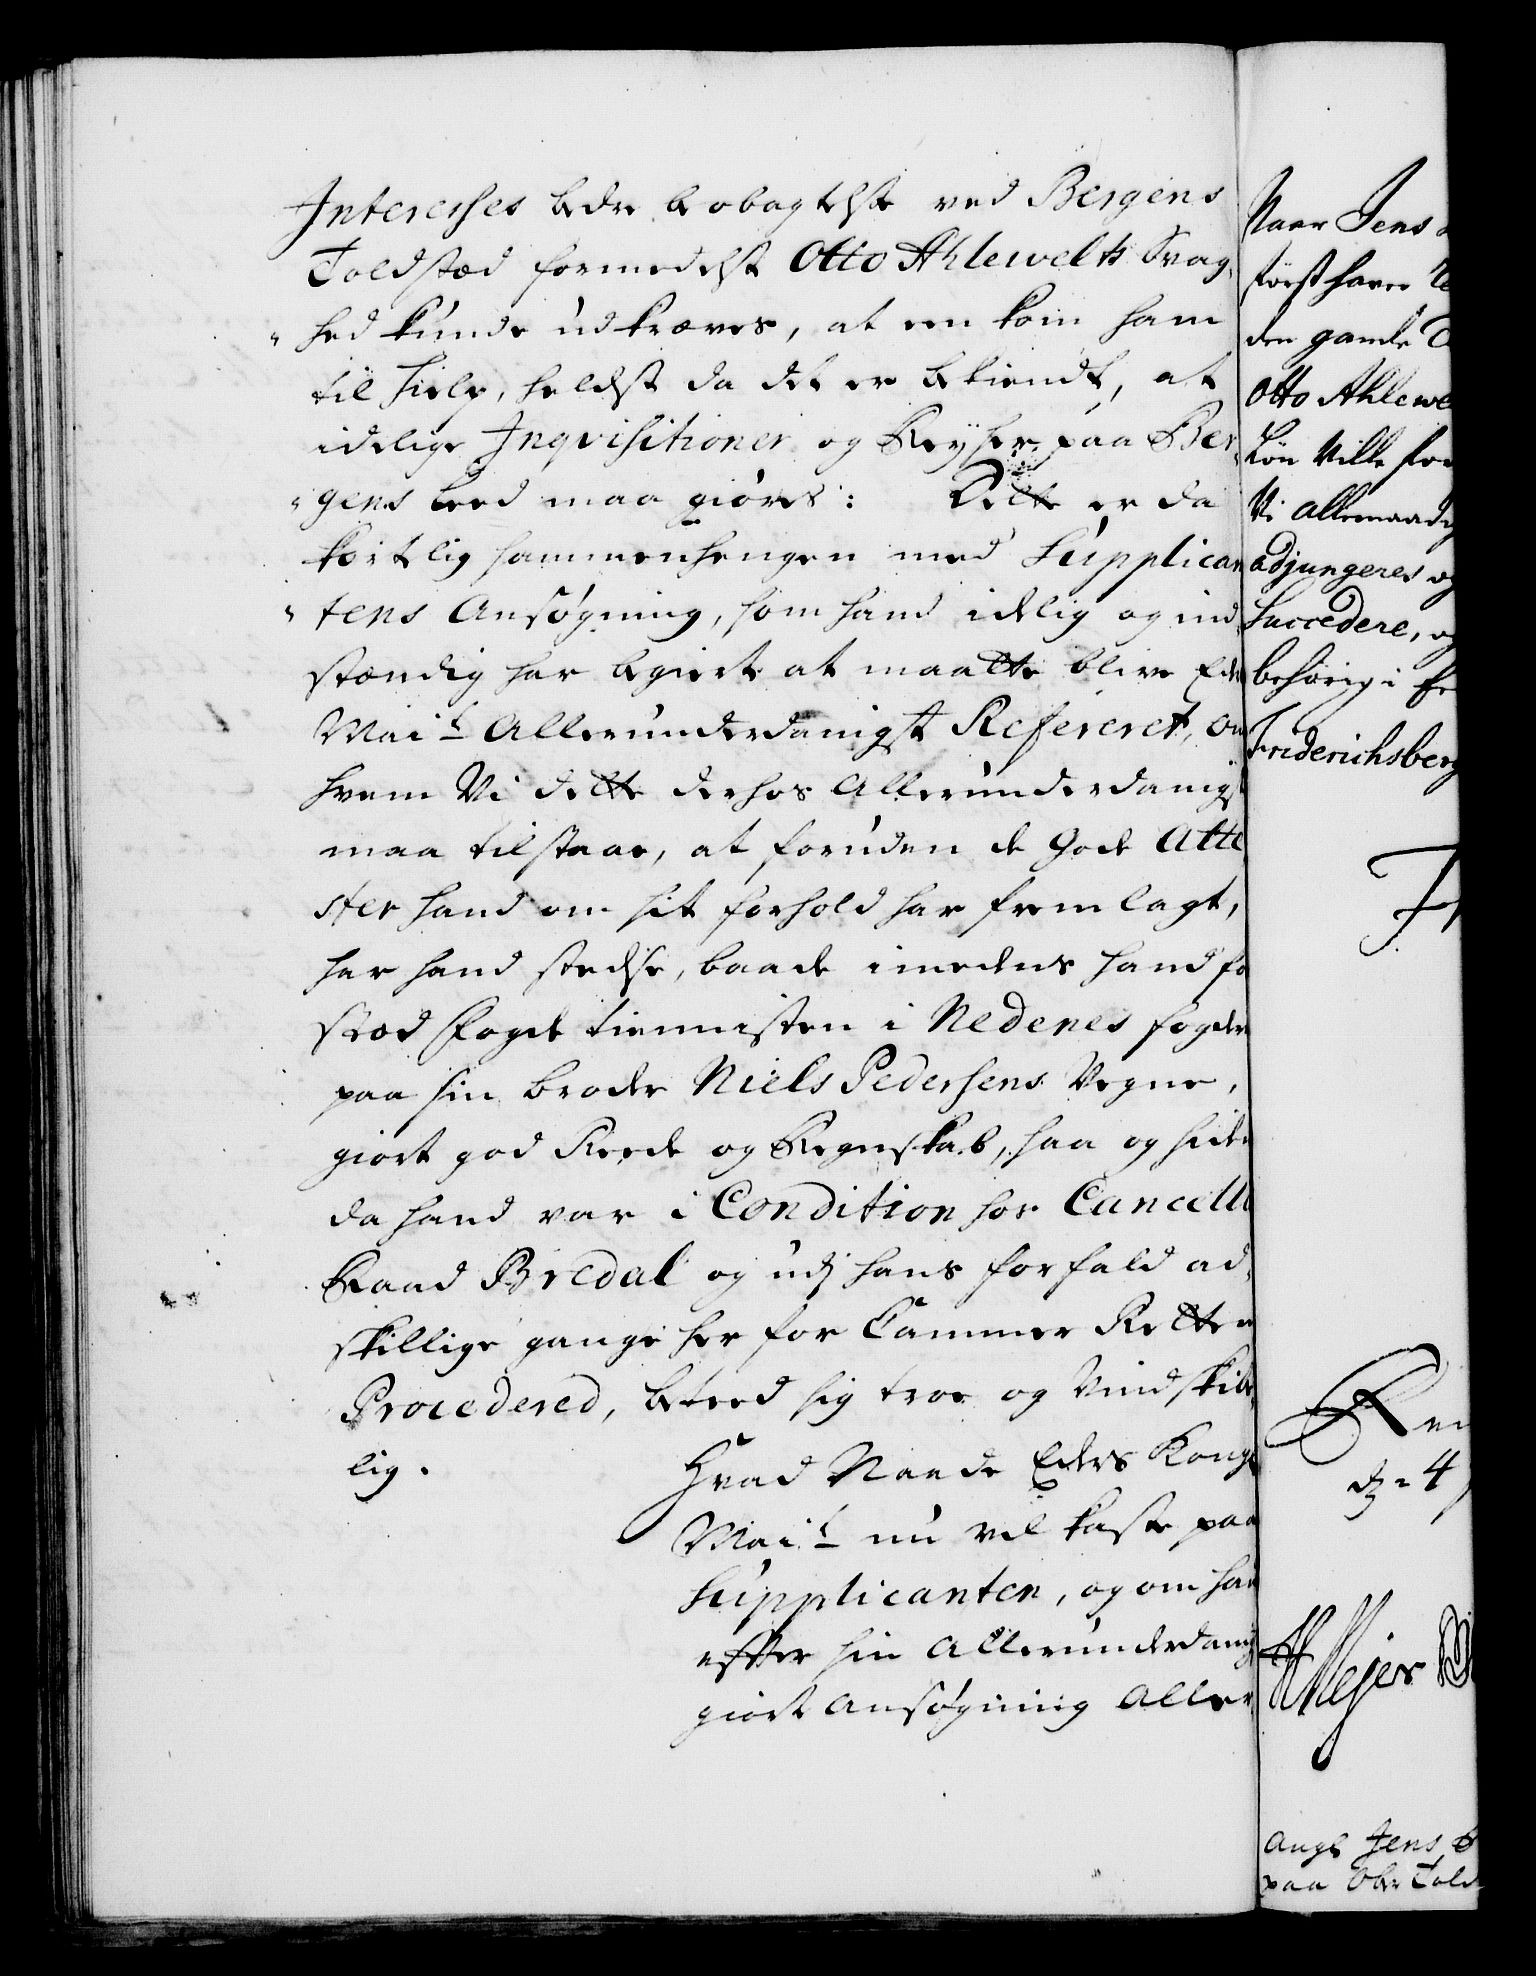 Interesses bedre beobagtelse ved Bergens
Toldsted formedelst Otto Ahlewelts Svag-
hed kunde udkræves, at een kom ham
til hielp, heldst da det er bekiendt, at
idelige Inqvisitioner og Reyser paa Ber-
gens leed maa giøres: Dette er da
kortelig sammenhengen med Supplican
tens Ansøgning, som hand idelig og ind-
stændig har begiert at maatte blive Eders
Mai:t Allerunderdanigst Refereret, om
hvem Vi dette derhos Allerunderdanigst
maa tilstaae, at foruden de gode Atte
ster hand om sit forhold har fremlagt,
har hand stedse, baade imedens hand fo
stod Foget tiennisten i Nedenes fogderi
paa sin broder Niels Pedersens Vegne,
giort god Reede og Regnskab, saa og siden
da hand var i Condition hos Cancelli
Raad Bredal og udj hans forfald ad-
skillige gange her for Cammer Retten
Procedered, beteed sig troe og Vindskibe-
lig.
Hvad Naade Eders Kongl
Mai:t nu vil kaste paa
Supplicanten, og om hand
effter sin Allerunderdanig
giorte Ansøgning Aller-
Naar Jens
først haver
den gamle
Otto Ahlewe
Løn Ville
Vi allernaadig
adjungeres og
Succedere, og
behørig i
Friderichsberg
F
Ren
d. 4
HMejer
Angl Jens
paa Ober Told